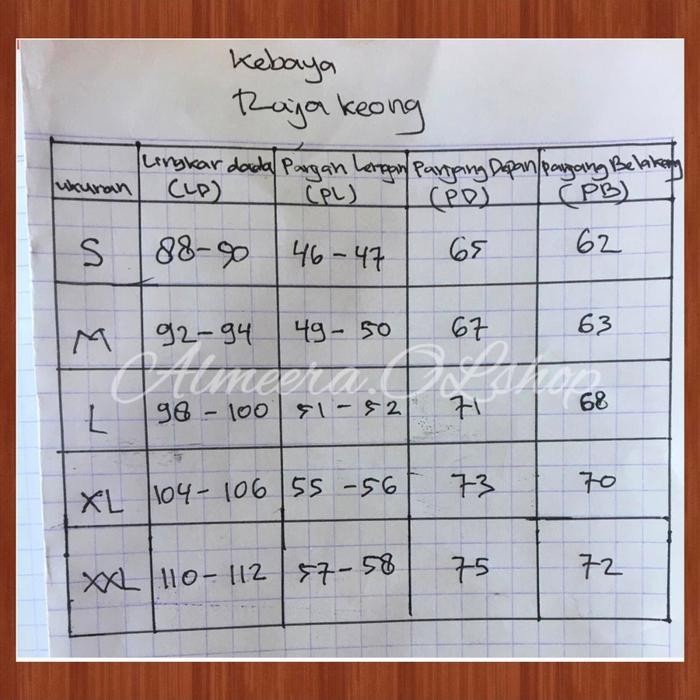 Kebaya
Raja keong
ukuran Lingkar dada (LD) Pangan Lengan (PL) Panjang Depan (PD) Panjang Belakang (PB)
S 88-90 46-47 65 62
M 92-94 49-50 67 63
L 98-100 51-52 71 68
XL 104-106 55-56 73 70
XXL 110-112 57-58 75 72
Almeera.OLshop